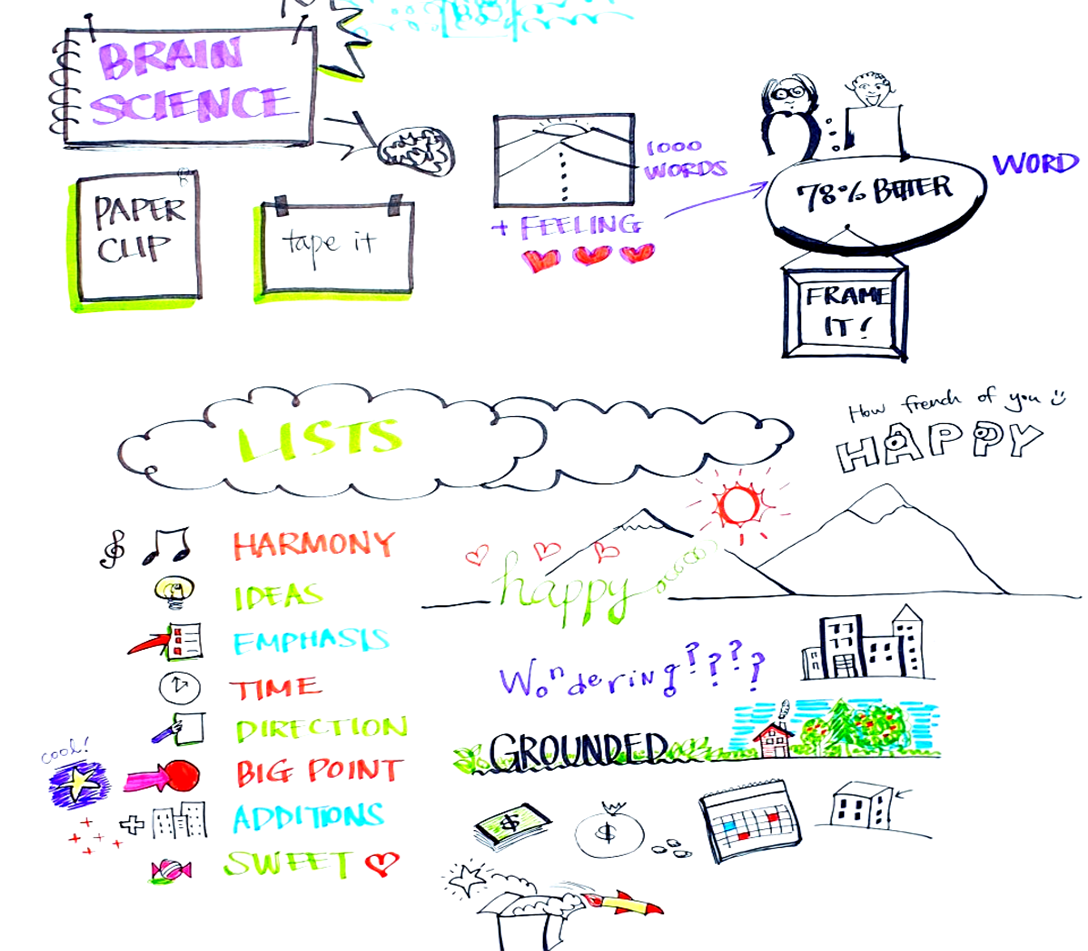 BRAIN
SCIENCE
PAPER
CLIP
tape it
1000
WORDS
+ FEELING
78% BETTER
WORD
FRAME
IT!
How french of you
HAPPY
LISTS
HARMONY
IDEAS
EMPHASIS
TIME
DIRECTION
cool!
BIG POINT
ADDITIONS
SWEET
happy
Wondering????
GROUNDED
$
$